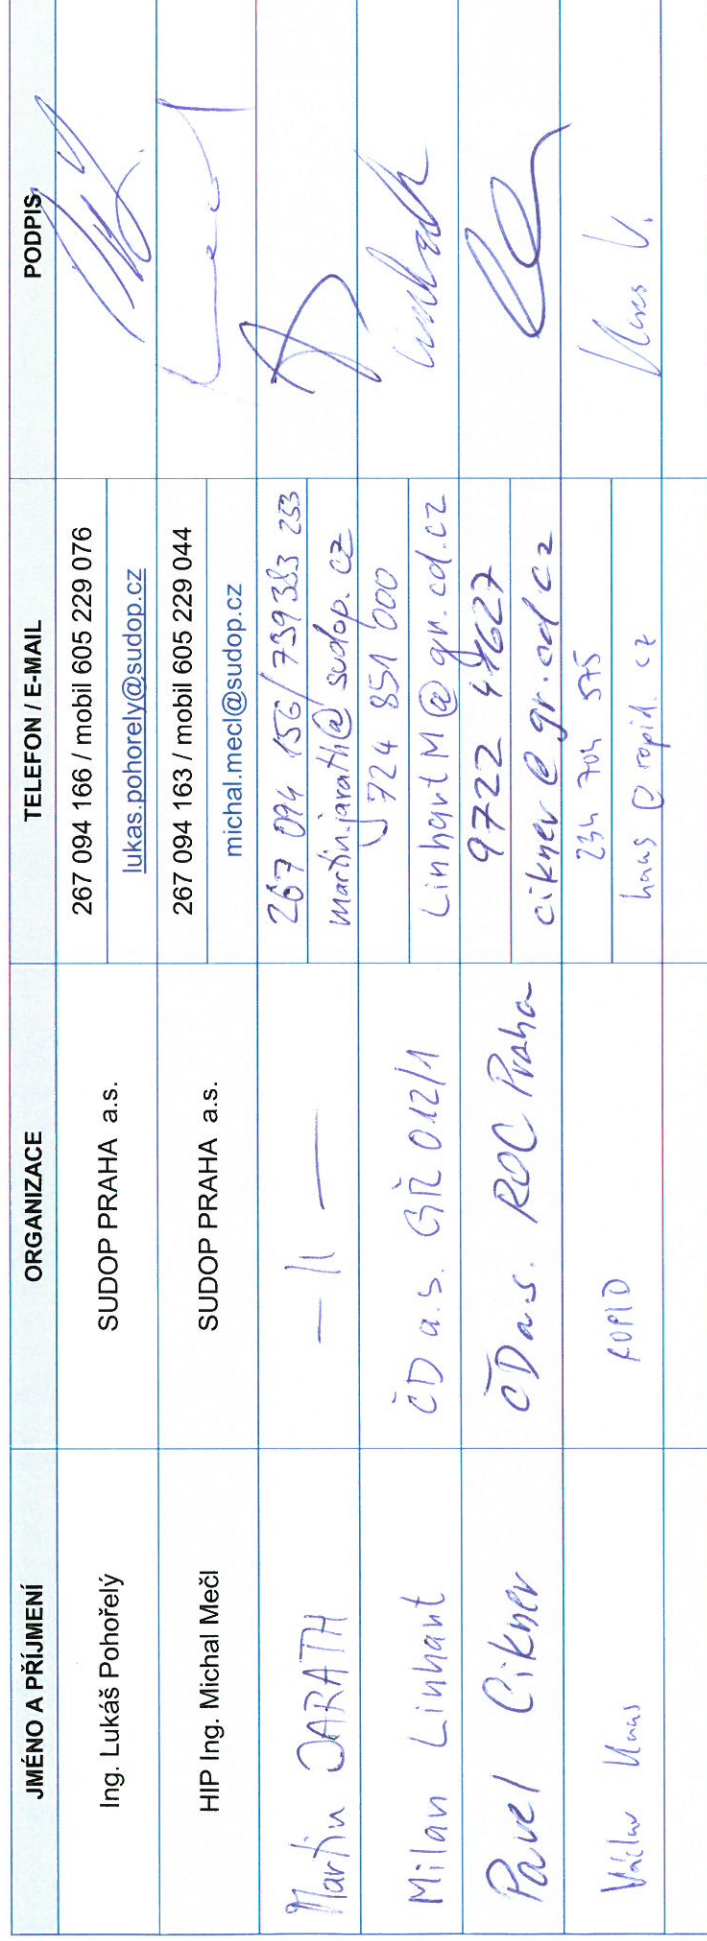 JMÉNO A PŘÍJMENÍ ORGANIZACE TELEFON / E-MAIL PODPIS
Ing. Lukáš Pohořelý SUDOP PRAHA a.s. 267 094 166 / mobil 605 229 076
lukas.pohorely@sudop.cz
HIP Ing. Michal Mečl SUDOP PRAHA a.s. 267 094 163 / mobil 605 229 044
michal.mecl@sudop.cz
Martin JARATH — 11 — 267 094 156/ 739 383 253
martin.jarath@sudop.cz
Milan Linhart ČD a.s. GŘ 012/1 724 851 000 Linhart
LinhartM@gr.cd.cz
Pavel Cikner ČD a.s. ROC Praha 9722 41627
cikner@gr.cd.cz
Václav Haas ROPID 234 704 575 Haas V.
haas@ropid.cz